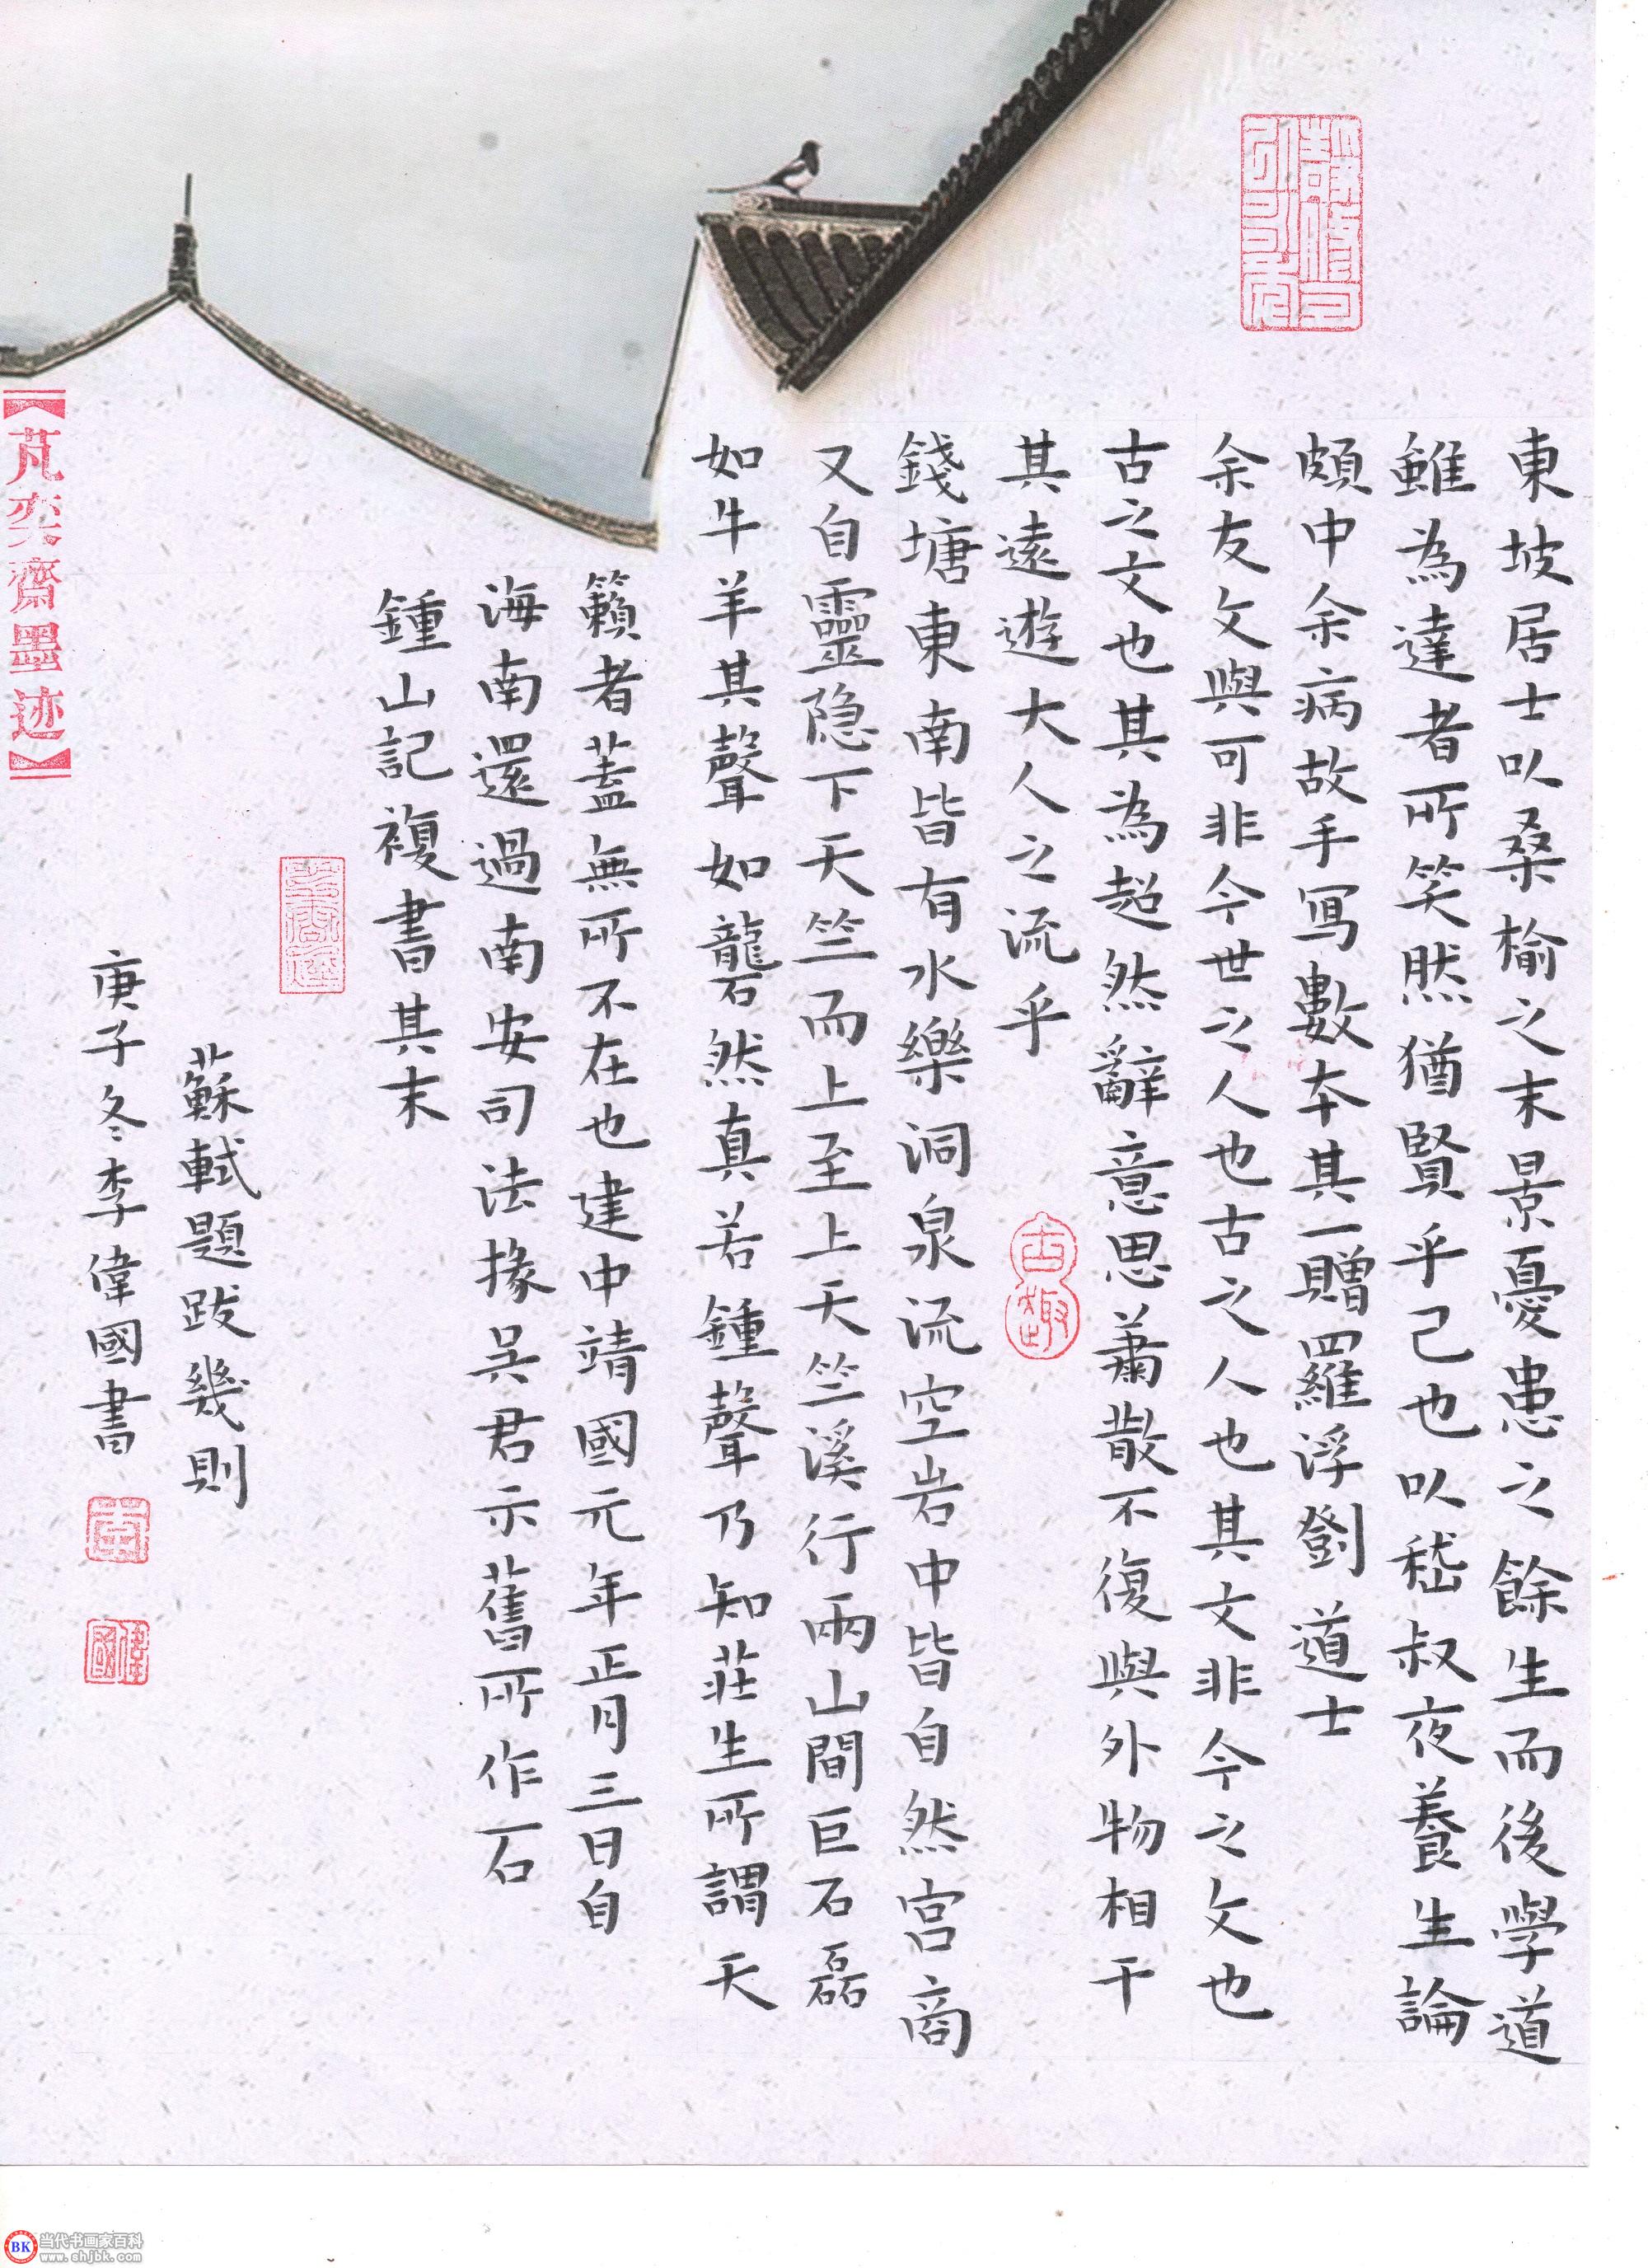 東坡居士以桑榆之末景憂患之餘生而後學道
雖為達者所笑然猶賢乎己也以嵇叔夜養生論
頗中余病故手寫數本其一贈羅浮劉道士
余友文與可非今世之人也古之人也其文非今之文也
古之文也其為超然辭意思蕭散不復與外物相干
其遠遊大人之流乎
錢塘東南皆有水樂洞泉流空岩中皆自然宮商
又自靈隐下天竺而上至上天竺溪行兩山間巨石磊
如牛羊其聲如礱然真若鍾聲乃知莊生所謂天
籟者蓋無所不在也建中靖國元年正月三日自
海南還過南安司法掾吳君示舊所作石
鍾山記複書其末
蘇軾題跋幾則
庚子冬李偉國書
古趣
【芃奕齋墨迹】
BK 当代书画家百科
www.shjbk.com